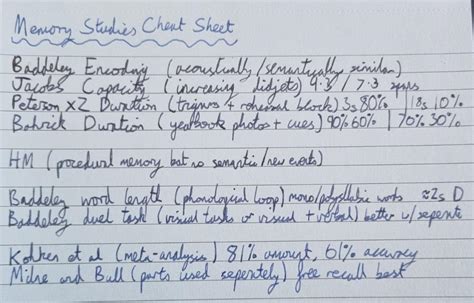 Memory Studies Cheat Sheet
Baddeley Encoding (acoustically/semantically similar)
Jacobs Capacity (increasing didjets) 9.3 / 7.3
Peterson x2 Duration (trigrams + rehersal block) 3s 80% | 18s 10%
Bahrick Duration (yearbook photos + cues) 90% 60% | 70% 30%
HM (procedural memory but no semantic/new events)
Baddeley word length (phonological loop) mono/polysyllabic words ≈2s
Baddeley duel task (visual tasks or visual + verbal) better w/ seperate
et al (meta-analysis) 81% amount, 61% accuracy
Milne and Bull (parts used seperately) free recall best